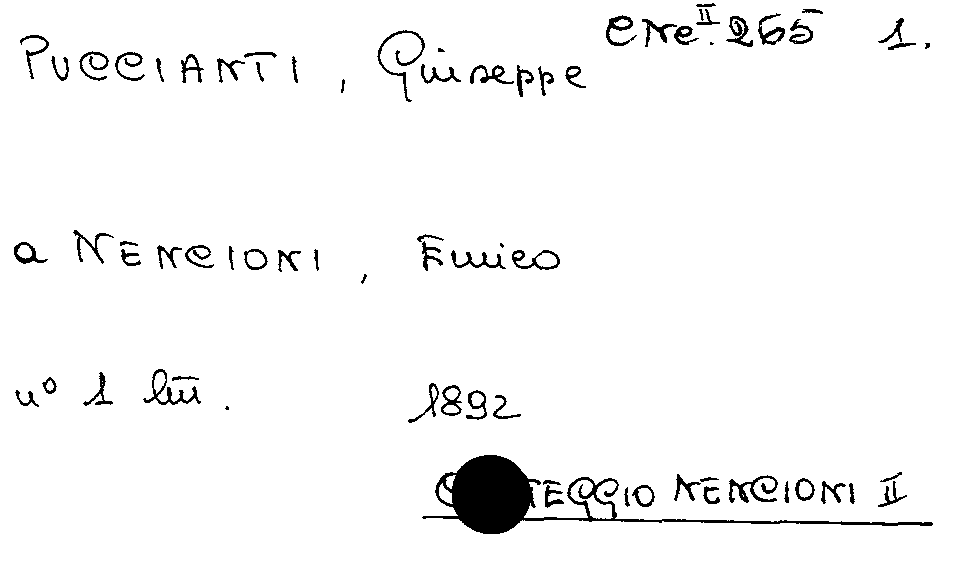 PUCCIANTI, Giuseppe CNe.II 265 1.
a NENCIONI, Enrico
n° 1 lett.
1892
NENCIONI II